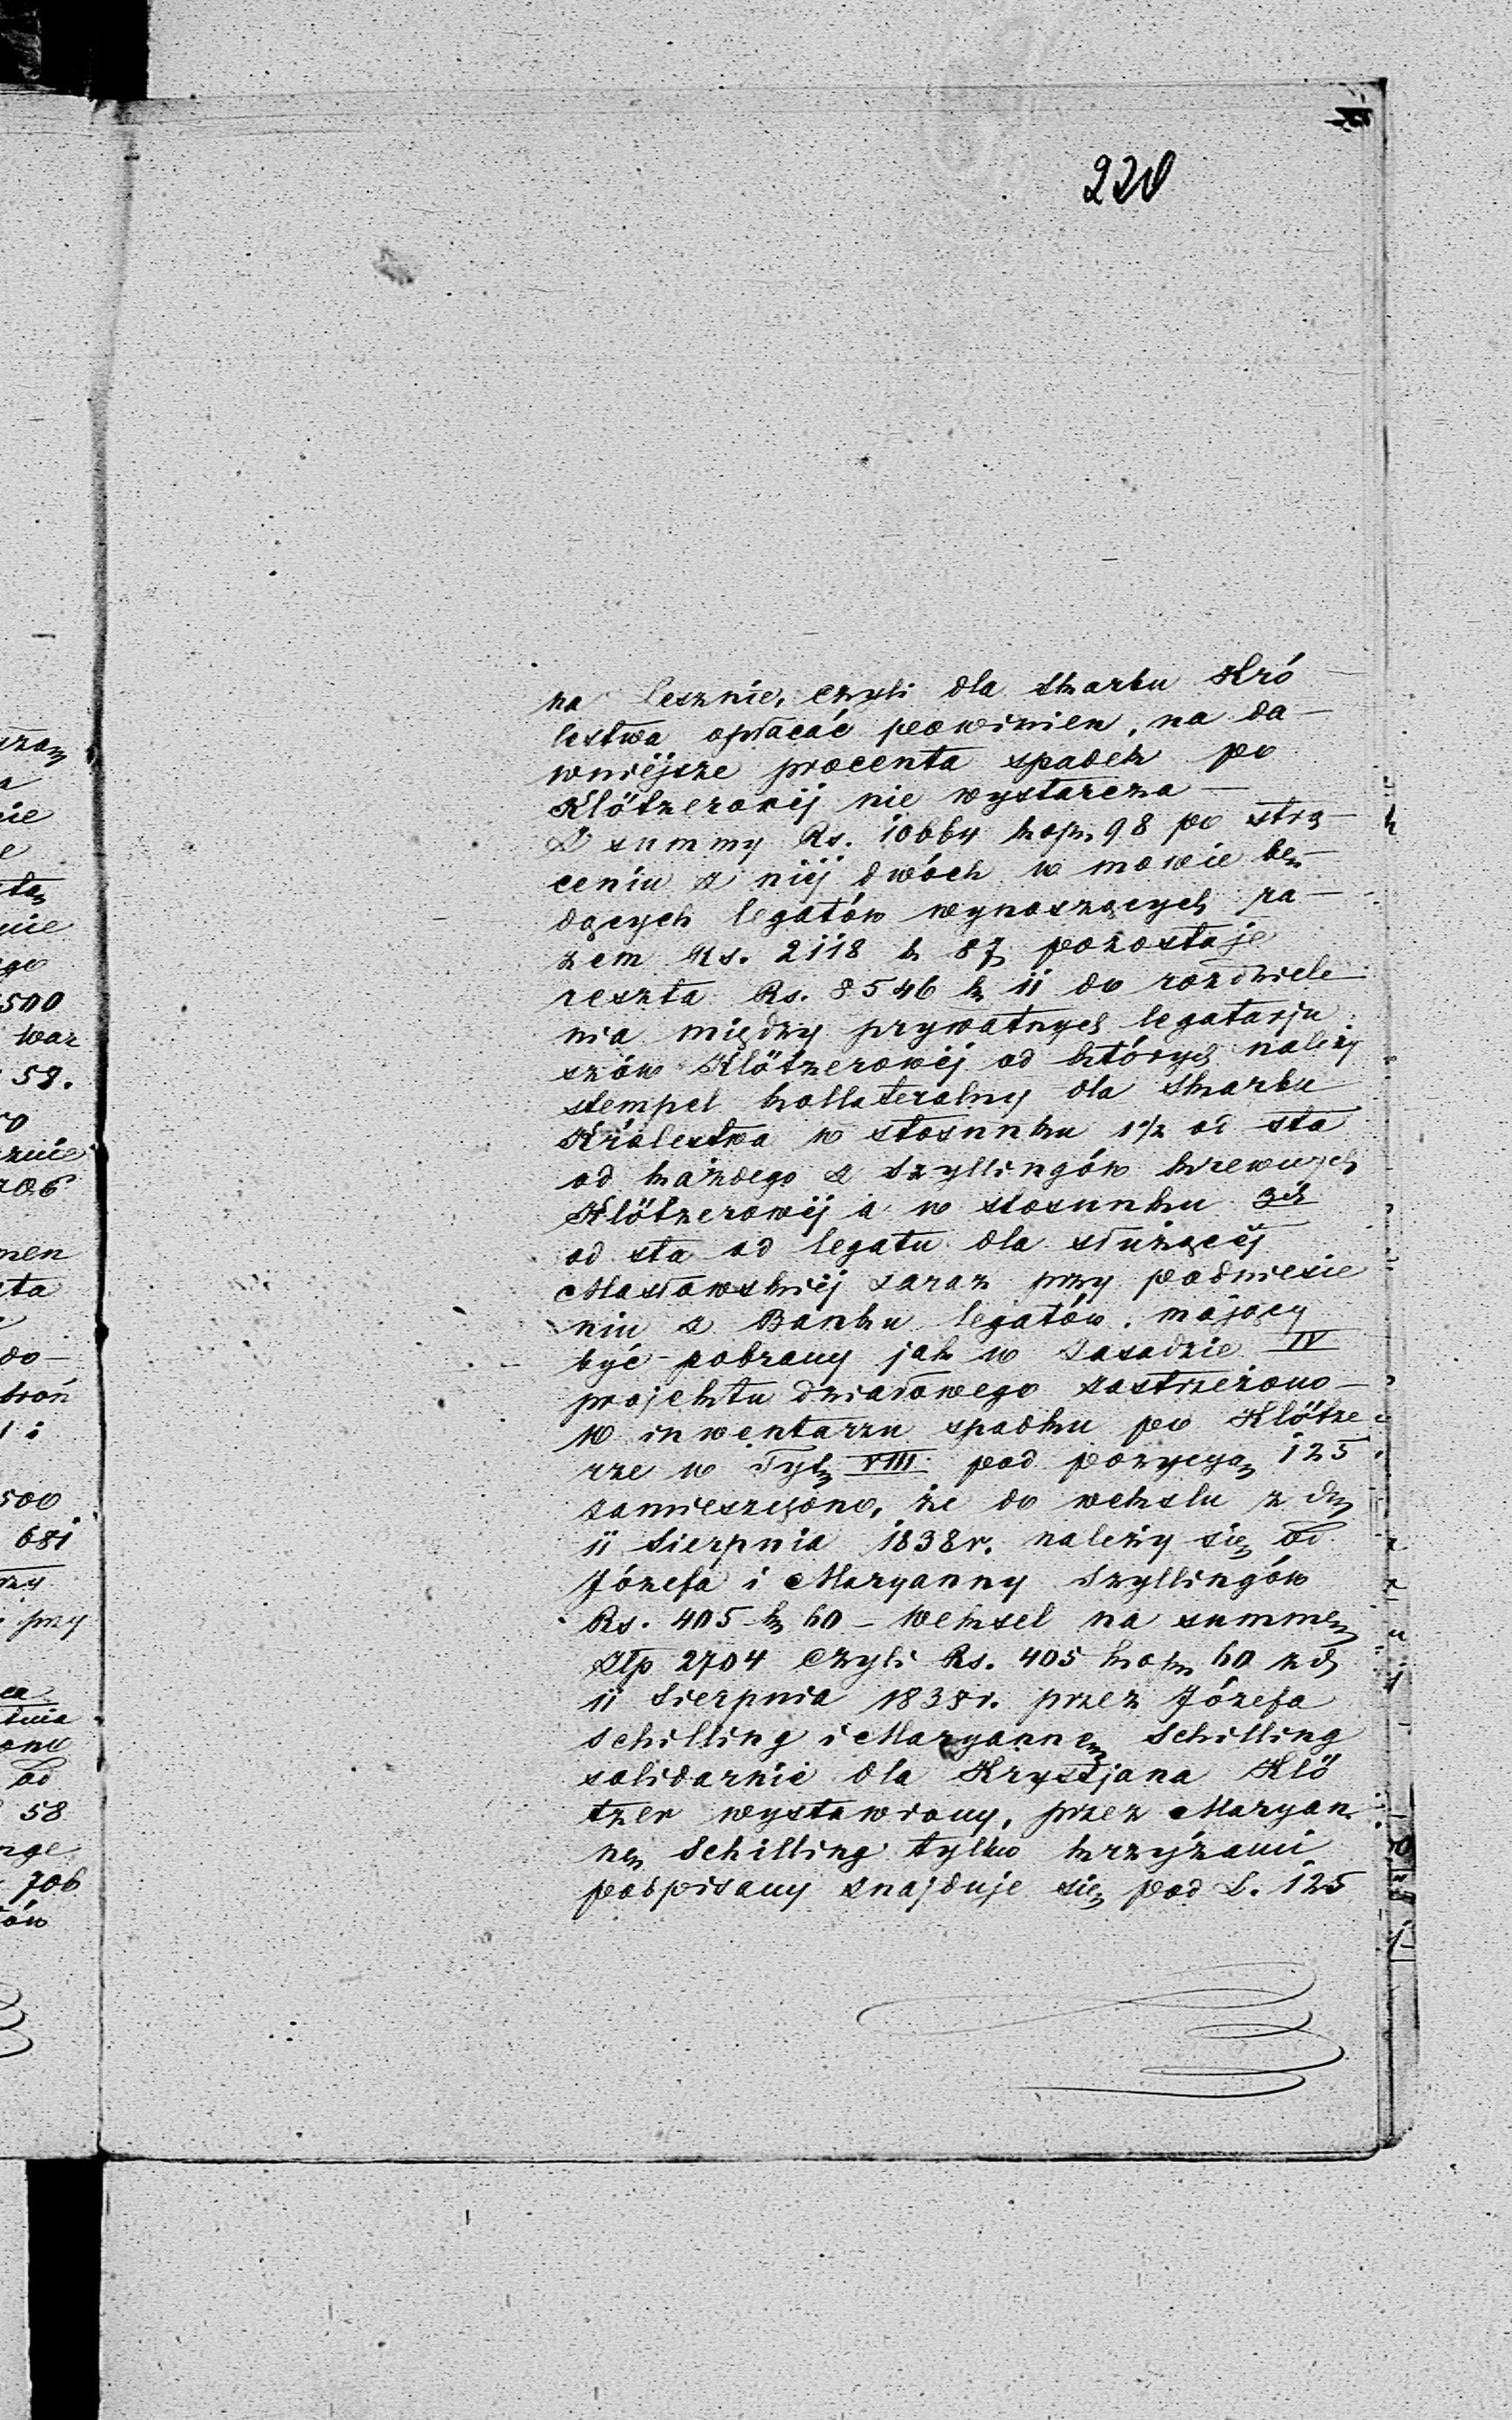 220
na Lesznie, czyli dla skarbu Kró
lestwa opłacać powinien, na da-
wniejsze procenta spadek po
Klötzerowéj nie wystarcza -
Z summy Rs. 10664 kop. 98 po strą-
ceniu z niéj dwóch w mowie bę-
dących legatów wynoszących ra-
zem Rs. 2118 k 87 pozostaje
reszta Rs. 8546 k 11 do rozdziele
nia między prywatnych legatarju
szów Klötzerowéj od których należy
stempel kollateralny dla skarbu
Królestwa w stosunku 1 1/2 od sta
od każdego z Szyllingów krewnych
Klötzerowéj a w stosunku 3ch
od sta od legatu dla służącéj
Masłowskiéj zaraz przy podniesie
niu z Banku legatów, mający
być pobrany jak w Zasadzie IV
projektu działowego zastrzeżono -
W inwentarzu spadku po Klötze
rze w Tyt. VIII pod pozycyą 125
zamieszczono, że do wekslu z d.
11 Sierpnia 1838 r. należy się od
Józefa i Maryanny Szyllingów
Rs. 405 k 60 - Weksel na summę
Złp 2704 czyli Rs. 405 kop. 60 z d.
11 Sierpnia 1838 r. przez Józefa
Schilling i Maryannę Schilling
solidarnie dla Krystjana Klö
tzer wystawiony, przez Maryan
nę Schilling tylko krzyżami
podpisany znajduje się pod L. 125